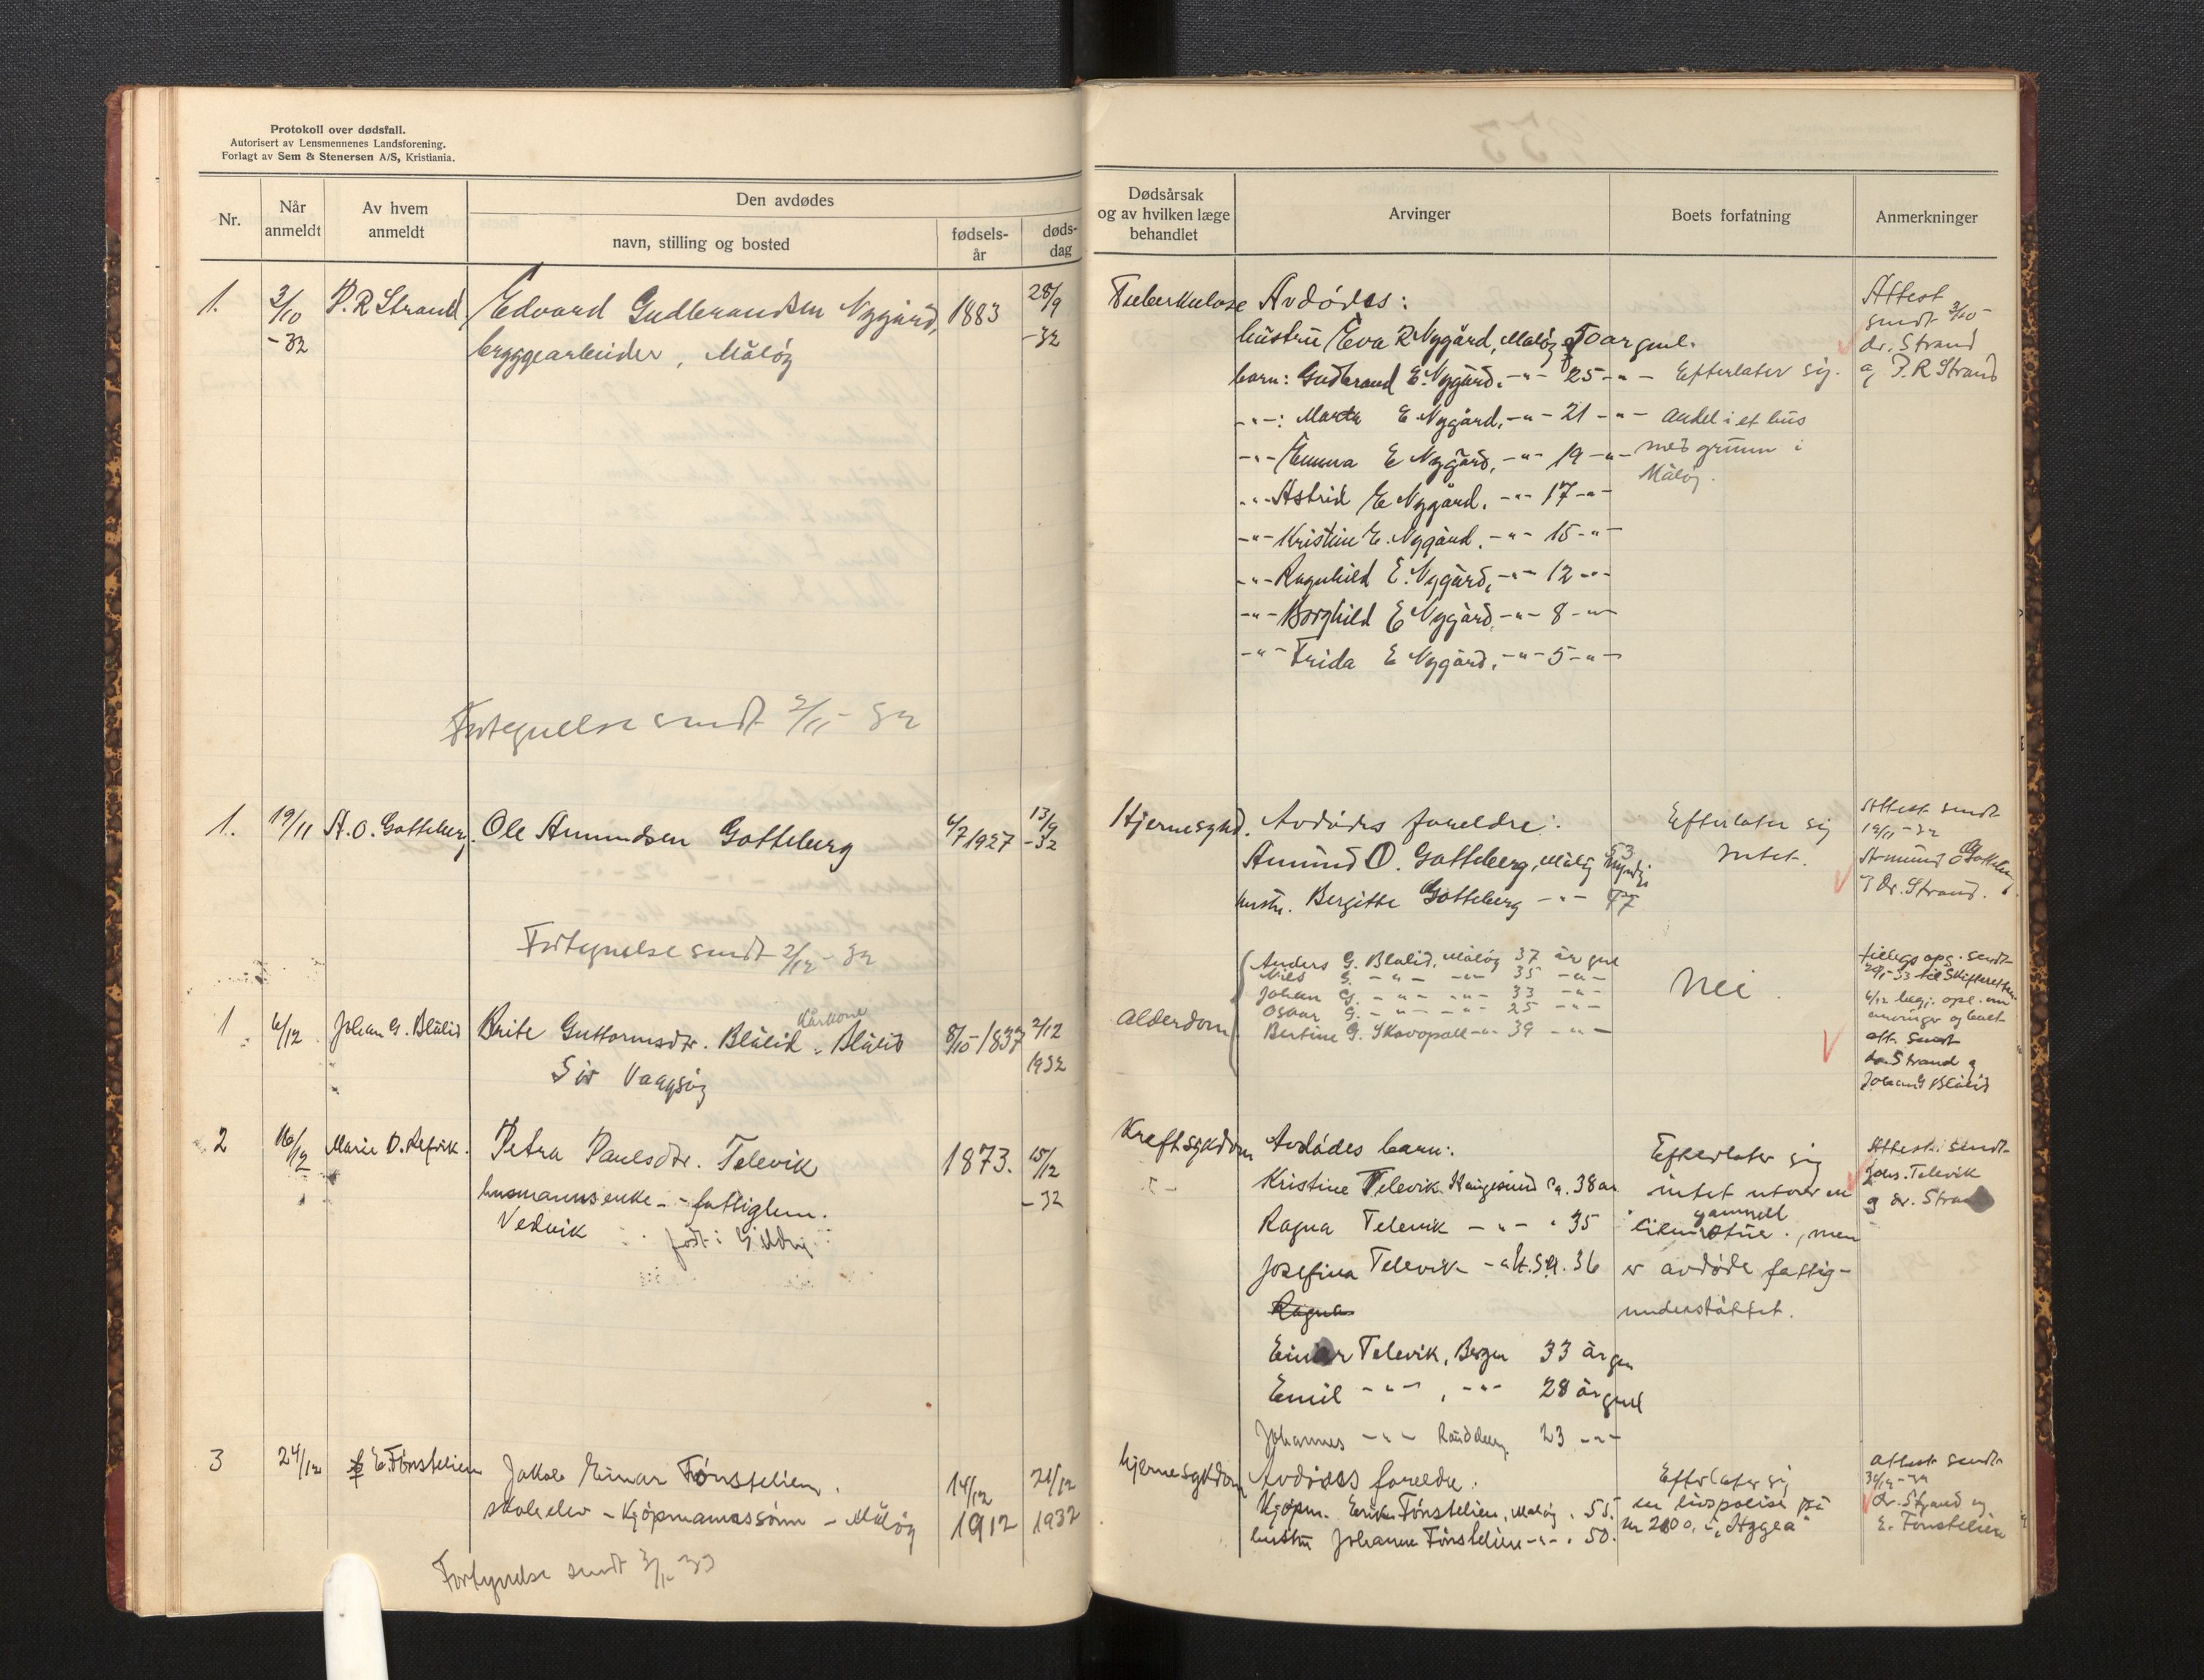 Protokoll over dødsfall.
Autorisert av Lensmennenes Landsforening.
Forlagt av Sem & Stenersen A/S, Kristiania.
Nr.
Når anmeldt
Av hvem anmeldt
Den avdødes
navn, stilling og bosted
fødsels-år
døds-dag
Dødsårsak og av hvilken læge behandlet
Arvinger
Boets forfatning
Anmerkninger
1. 3/10 -32 P. R Strand Edvard Gudbrandsen Nygård, 1883 28/9 -32
bryggearbeider, Måløy
Tuberkulose
Avdødes:
hustru Eva R Nygård, Måløy 50 år gml.
barn: Gudbrand E. Nygård. -"- 25 -"-
-"-: Marta E Nygård, -"- 21 -"-
-"- Emma E Nygård, -"- 19 -"-
-"- Astrid E Nygård. -"- 17 -"-
-"- Kristine E. Nygård. -"- 15 -"-
-"- Ragnhild E. Nygård, -"- 12 -"-
-"- Borghild E Nygård -"- 8 -"-
-"- Frida E Nygård, -"- 5 -"-
Efterlater sig
andel i et hus
med grunn i
Måløy.
Attest
sendt 3/10 -
dr. Strand
og P. R Strand
Fortegnelse sendt 2/11 - 32
1. 19/11 A. O. Gotteberg. Ole Amundsen Gotteberg 4/7 1927 13/9 -32
Hjernesykd.
Avdødes foreldre:
Amund O. Gotteberg, Måløy 53
hustr. Bergitte Gotteberg -"- 47
Efterlater sig
intet.
Attest sendt
19/11 - 32
Amund O Gotteberg
og dr. Strand.
Fortegnelse sendt 2/12 - 32
1 6/12 Johan G. Blålid Brite Guttormsdtr. Blålid, Kårkone Blålid 8/10 - 1837 2/12 1932
Sør Vaagsøy
Alderdom
Anders G. Blålid, Måløy 37 år gml
Nils G. -"- -"- 35 -"-
Johan G. -"- -"- 33 -"-
Oskar G. -"- -"- 25 -"-
Bertine G. Skavopoll -"- 39 -"-
Nei.
tillegs opg. sendt
6/12 begj. opl. om
arvinger og boet
att. sendt
dr. Strand og
Johan G Blålid
2 16/12 Marie D. Refvik. Petra Paulsdtr. Televik 1873. 15/12 -32
husmannsenke - fattiglem.
Vedvik født i
Kreftsykdom
Avdødes barn:
Kristine Televik Haugesund ca. 38 år
Ragna Televik -"- " 35
Josefina Televik 36
Ragna
Einar Televik, Bergen 33 år gml
Emil -"-, -"- 28 år gml
Johannes -"- 23 -"-
Efterlater sig
intet utover en
gammelt
, men
er avdøde fattig-
understøttet.
Attest sendt
Johs. Televik
og dr. Strand
3 24/12 E. Tønstelien Jakob Einar Tønstelien. 14/12 1912 21/12 1932
skoleelev - Kjøpmannssønn - Måløy
hjernesykdom
Avdødes foreldre:
Kjøpm. Erik Tønstelien, Måløy. 55.
hustru Johanne Tønstelien -"- . 50.
Efterlater sig
en livspolise på
kr 2000, i „Hygea"
attest sendt
dr. Strand og
E. Tønstelien
Fortegnelse sendt 3/1 - 33